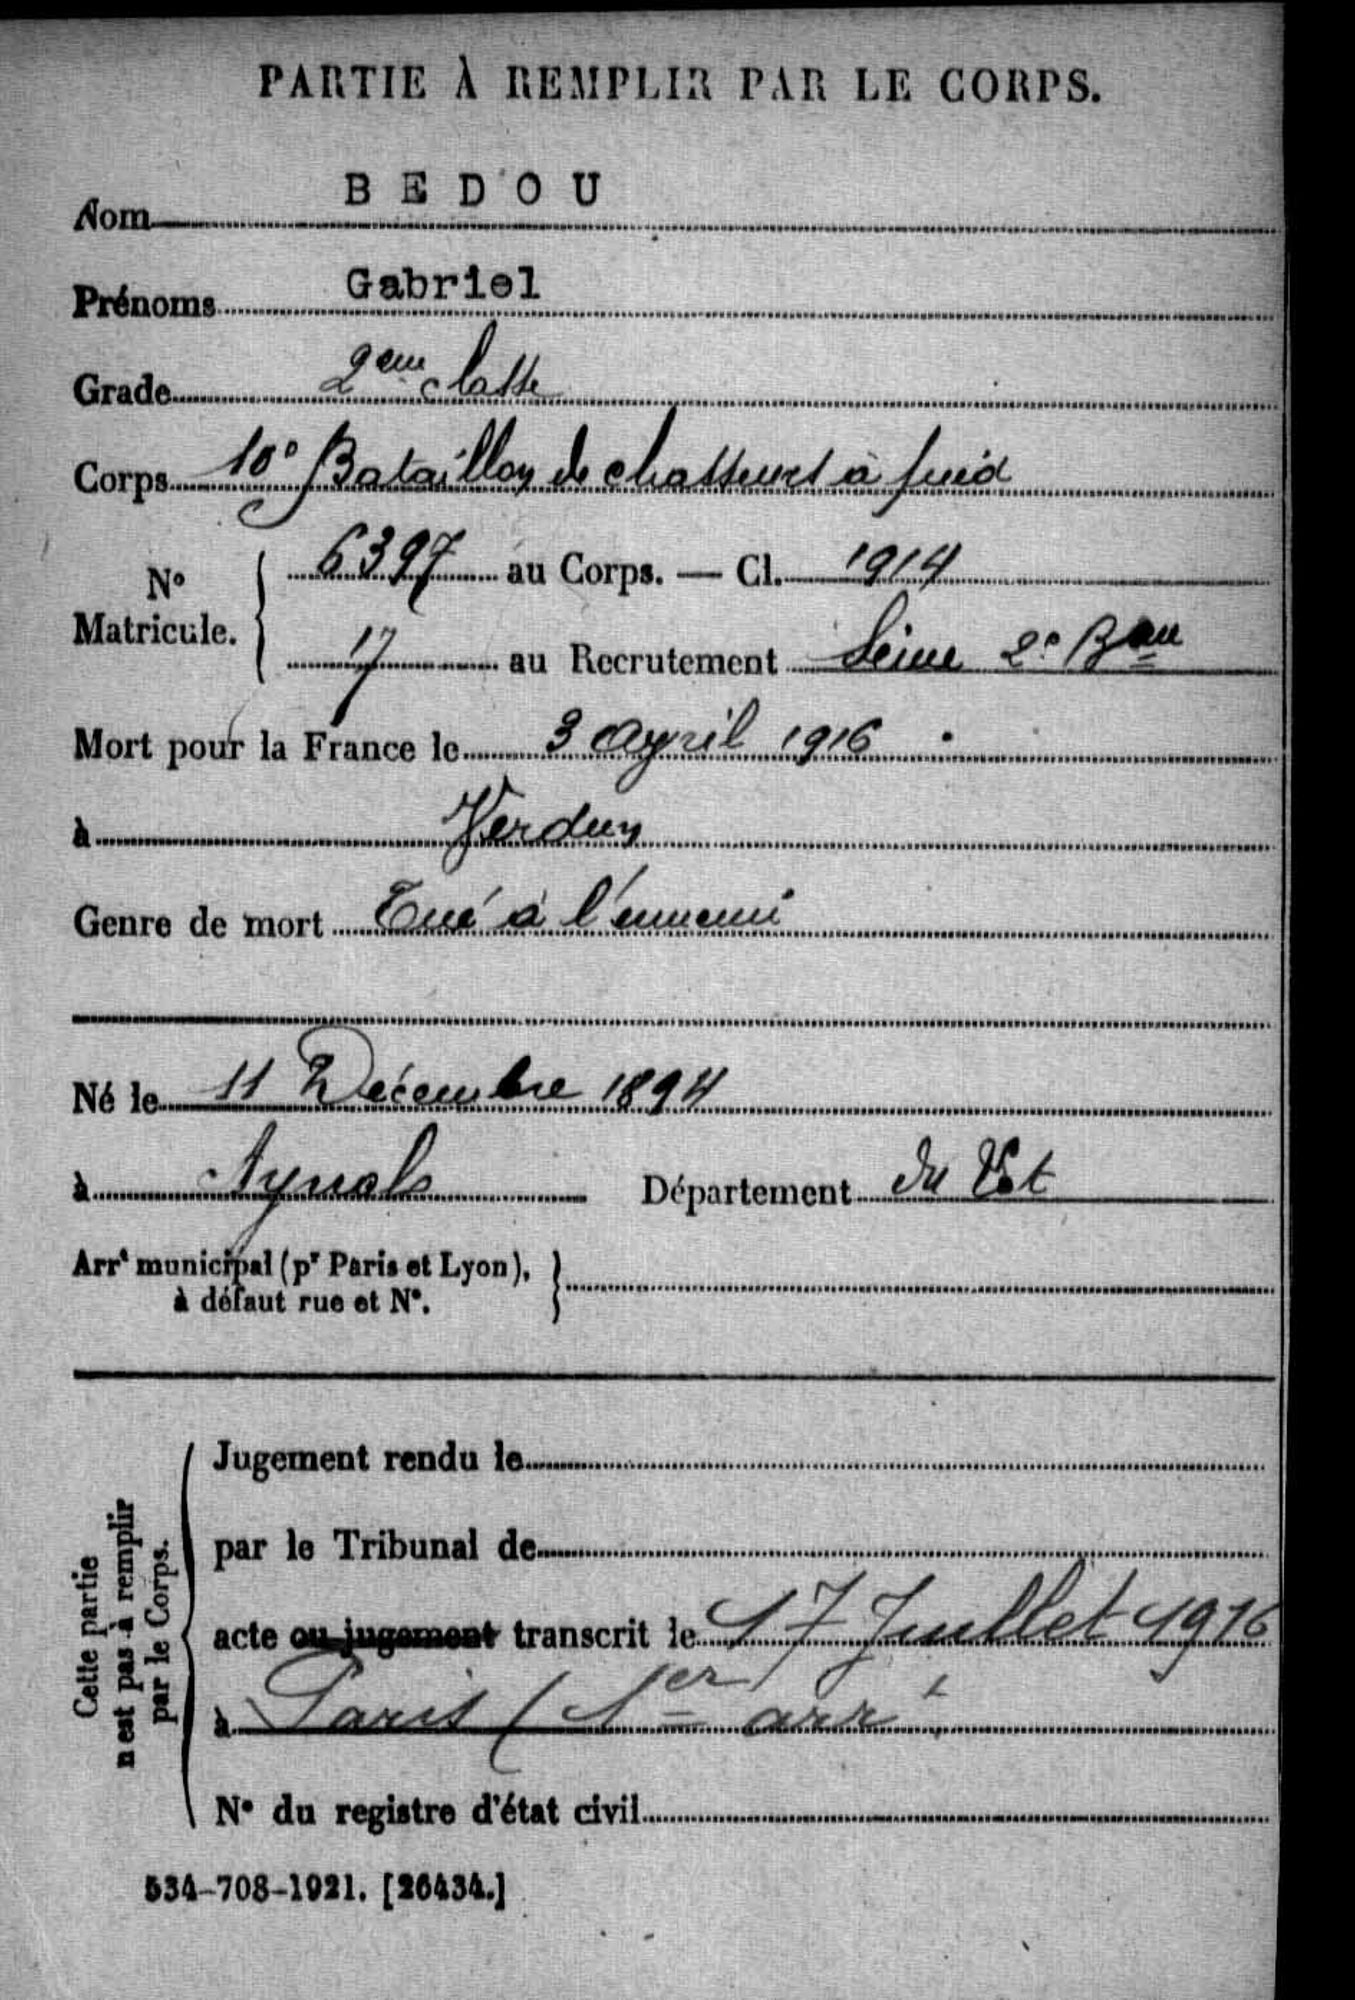 PARTIE À REMPLIR PAR LE CORPS.
Nom BEDOU
Prénoms Gabriel
Grade 2eme classe
Corps 10e Bataillon de chasseurs à pied
No Matricule. 6397 au Corps. — Cl. 1914
17 au Recrutement Seine 2e Bau
Mort pour la France le 3 Avril 1916
à Verdun
Genre de mort Tué à l'ennemi
Né le 11 Décembre 1894
à Aynals Département du Lot
Arrt municipal (pr Paris et Lyon),
à défaut rue et No.
Cette partie
n'est pas à remplir
par le Corps.
Jugement rendu le
par le Tribunal de
acte ou jugement transcrit le 17 Juillet 1916
à Paris (1er arrt
No du registre d'état civil
534-708-1921. [26434.]